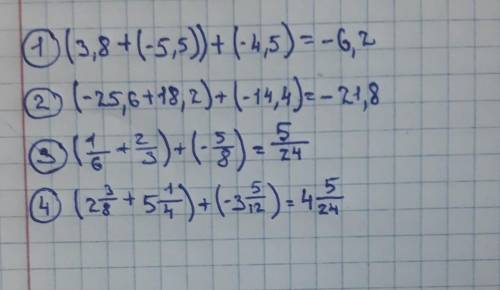 ① (3,8 + (-5,5)) + (-4,5) = -6,2
② (-25,6 + 18,2) + (-14,4) = -21,8
③ (1/6 + 2/3) + (-5/8) = 5/24
④ (2 3/8 + 5 1/4) + (-3 5/12) = 4 5/24